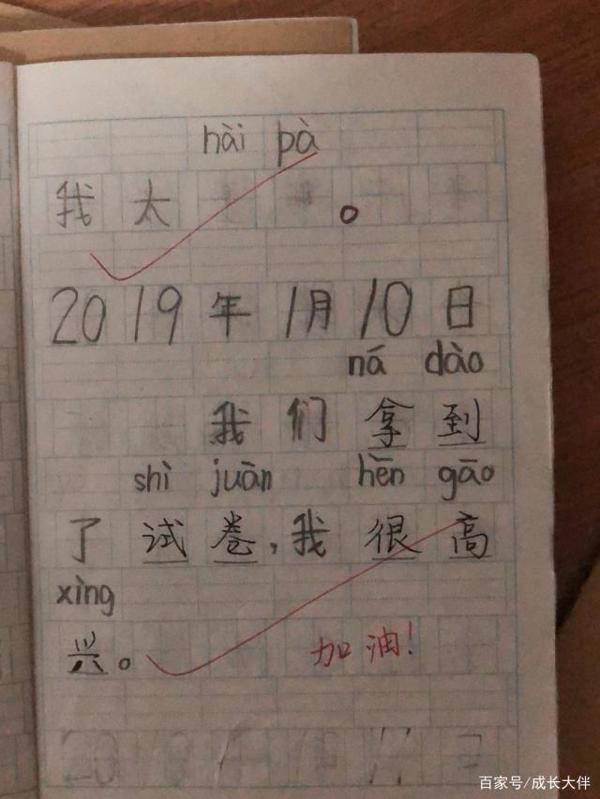 hài pà
我太。
2019年1月10日
ná dào
我们拿到
shì juàn hěn gāo
了试卷,我很高
xìng
兴。
加油!
百家号/成长大伴